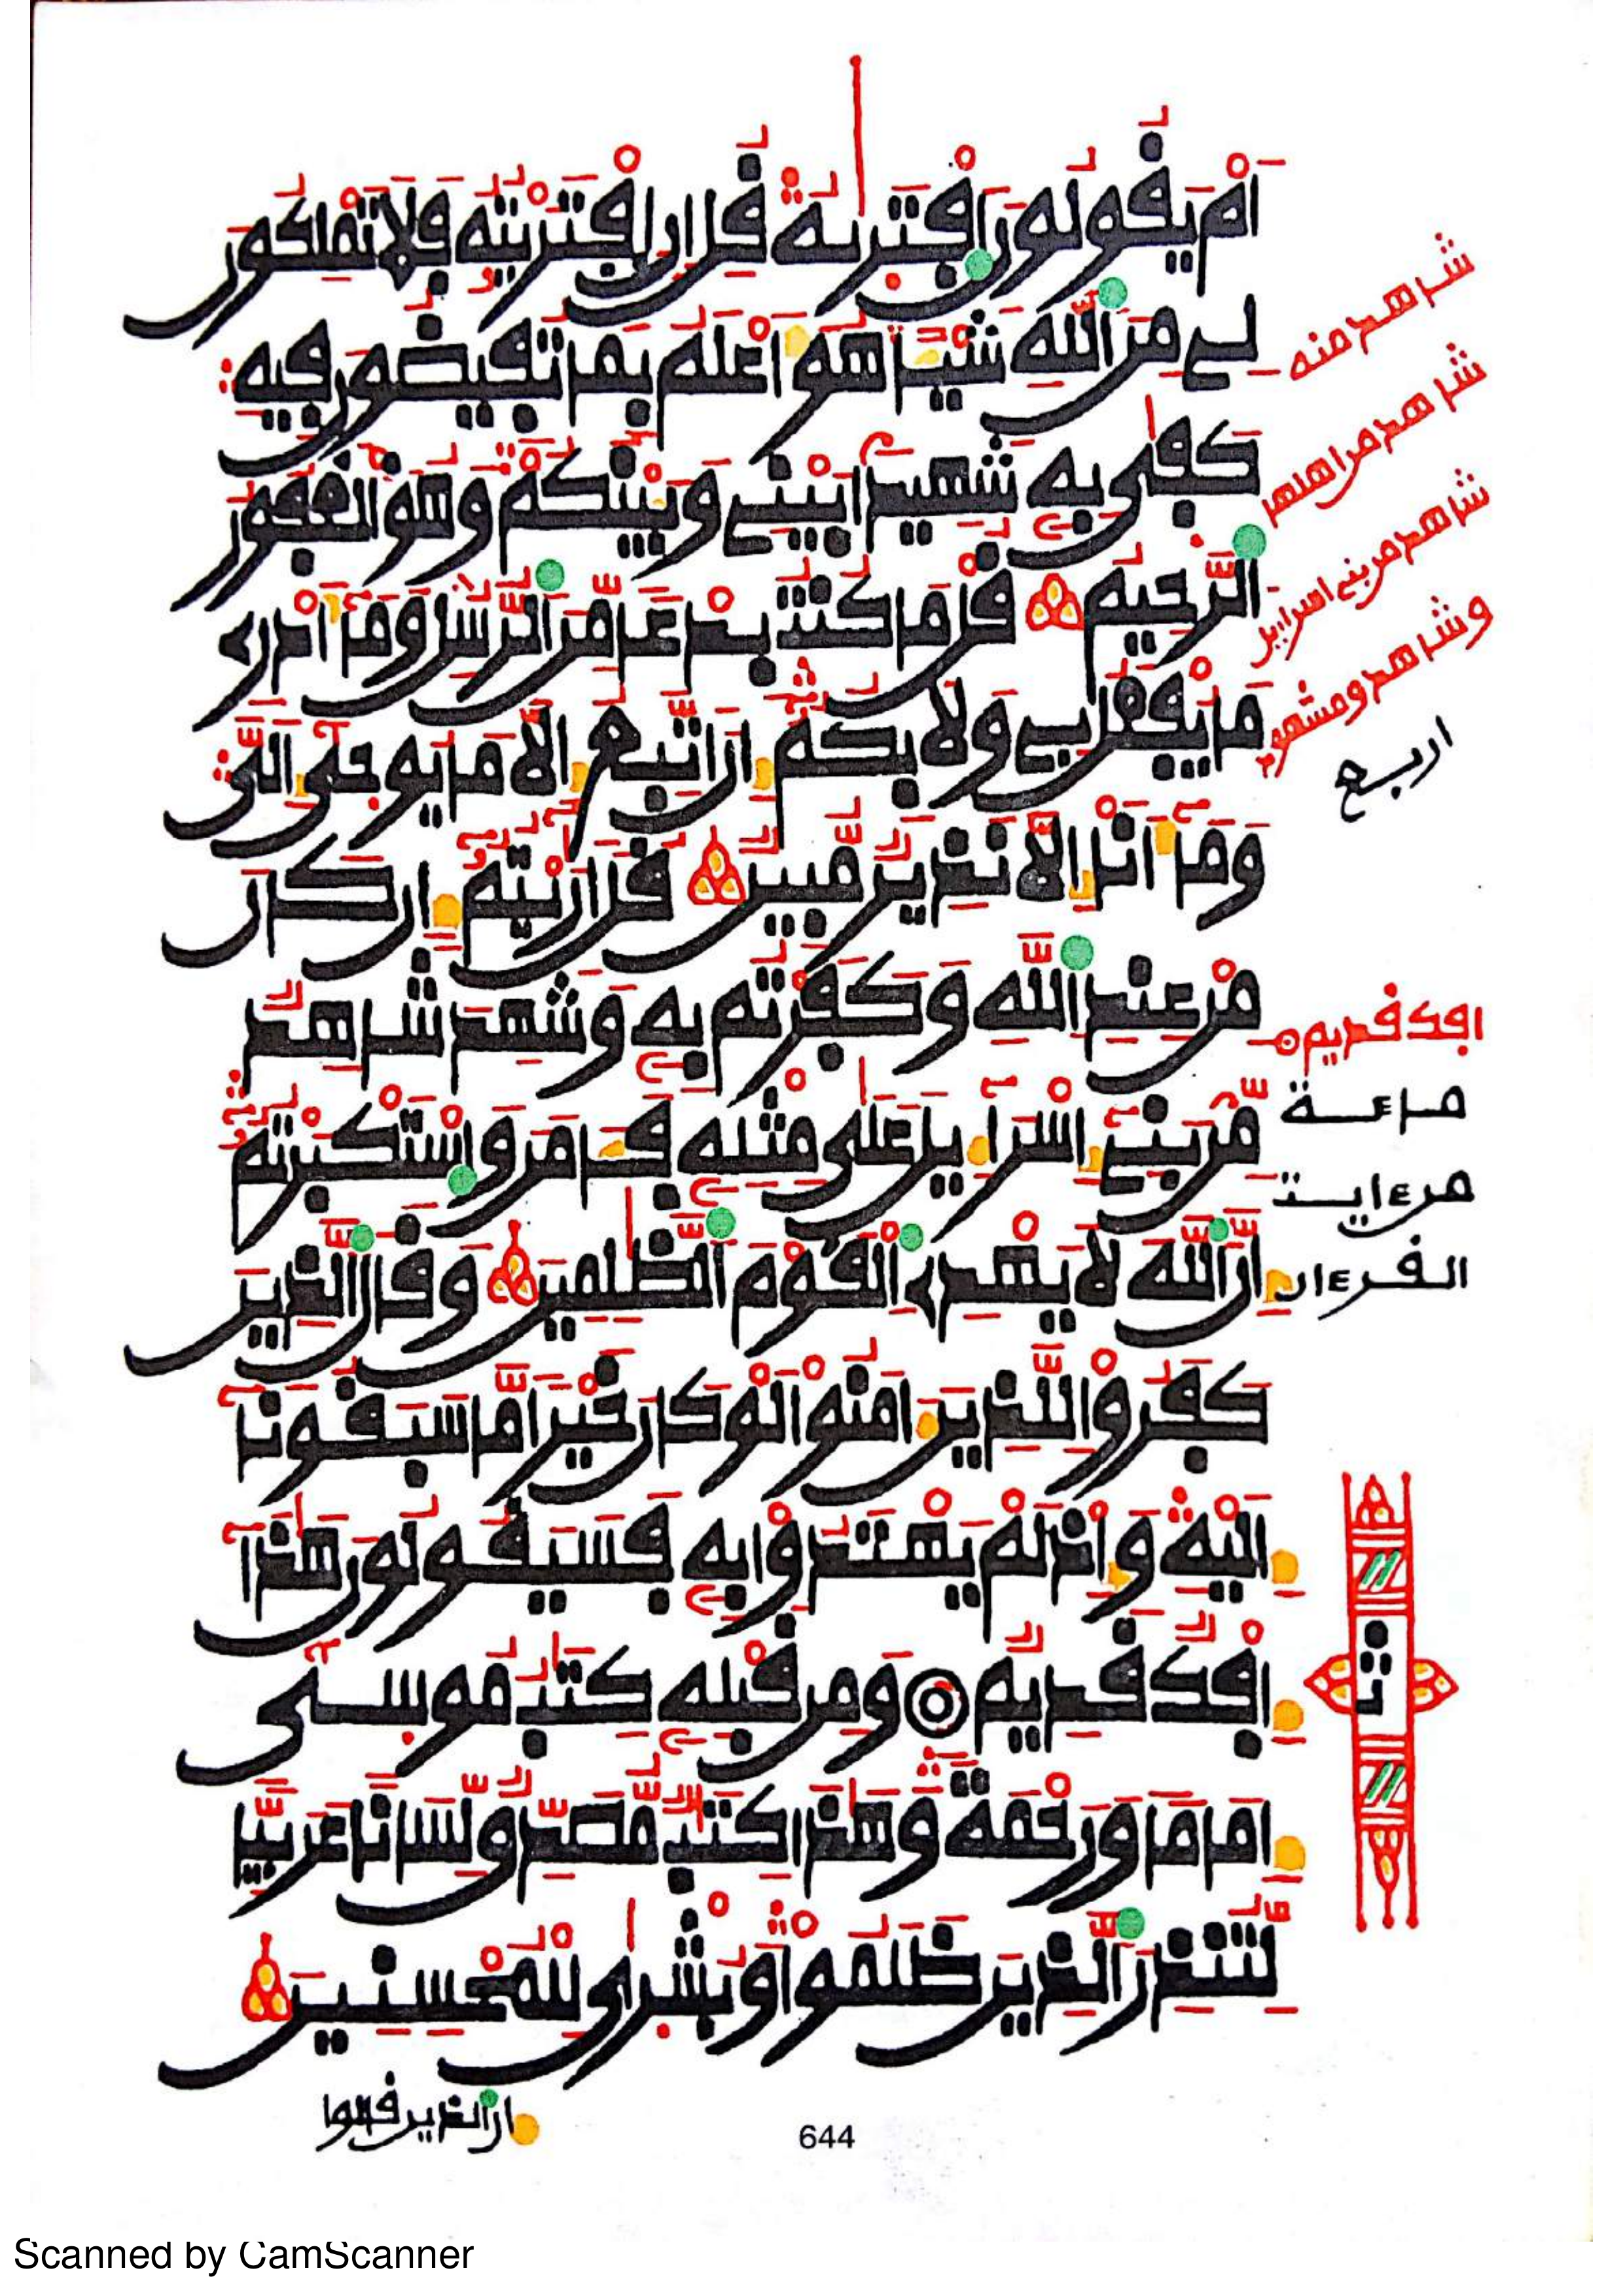 أَمْ يَقُولُونَ اَفْتَرَىٰهُ قُلِ اِنِ اِفْتَرَيْتُهُ فَلَا تَمْلِكُونَ
لِے مِنَ اَللَّهِ شَيْـًٔا هُوَ أَعْلَمُ بِمَا تُفِيضُونَ فِيهِ
كَفَىٰ بِهِۦ شَهِيدَۢا بَيْنِے وَبَيْنَكُمْ وَهُوَ اَلْغَفُورُ
اُلرَّحِيمُ قُلْ مَا كُنتُ بِدْعًا مِّنَ اَلرُّسُلِ وَمَآ أَدْرِے
مَا يُفْعَلُ بِے وَلَا بِكُمُۥٓ إِنَ اَتَّبِعُ إِلَّا مَا يُوحَىٰٓ إِلَيَّ
وَمَآ أَنَا إِلَّا نَذِيرٌ مُّبِينٌ قُلَ اَرَٰٓيْتُمُۥٓ إِن كَانَ
مِنْ عِندِ اِللَّهِ وَكَفَرْتُم بِهِۦ وَشَهِدَ شَاهِدٌ
مِّنۢ بَنِےٓ إِسْرَآءِيلَ عَلَىٰ مِثْلِهِۦ فَـَٔامَنَ وَاسْتَكْبَرْتُمُۥٓ
إِنَّ اَللَّهَ لَا يَهْدِے اِلْقَوْمَ اَلظَّٰلِمِينَ وَقَالَ اَلذِينَ
كَفَرُوا لِلذِينَ ءَامَنُوا لَوْ كَانَ خَيْرًا مَّا سَبَقُونَآ
إِلَيْهِ وَإِذْ لَمْ يَهْتَدُوا بِهِۦ فَسَيَقُولُونَ هَٰذَآ
إِفْكٌ قَدِيمٌ وَمِن قَبْلِهِۦ كِتَٰبُ مُوسَىٰٓ
إِمَامًا وَرَحْمَةً وَهَٰذَا كِتَٰبٌ مُّصَدِّقٌ لِّسَانًا عَرَبِيًّا
لِّتُنذِرَ اَلذِينَ ظَلَمُوا وَبُشْرَىٰ لِلْمُحْسِنِينَ
شاهد منه
شاهد من اهلها
شاهد من بنے اسراءيل
وشاهد ومشهود
اربع
افك قديم
من ءايت
القرءان
ثمن
إن الذين قالوا
644
Scanned by CamScanner